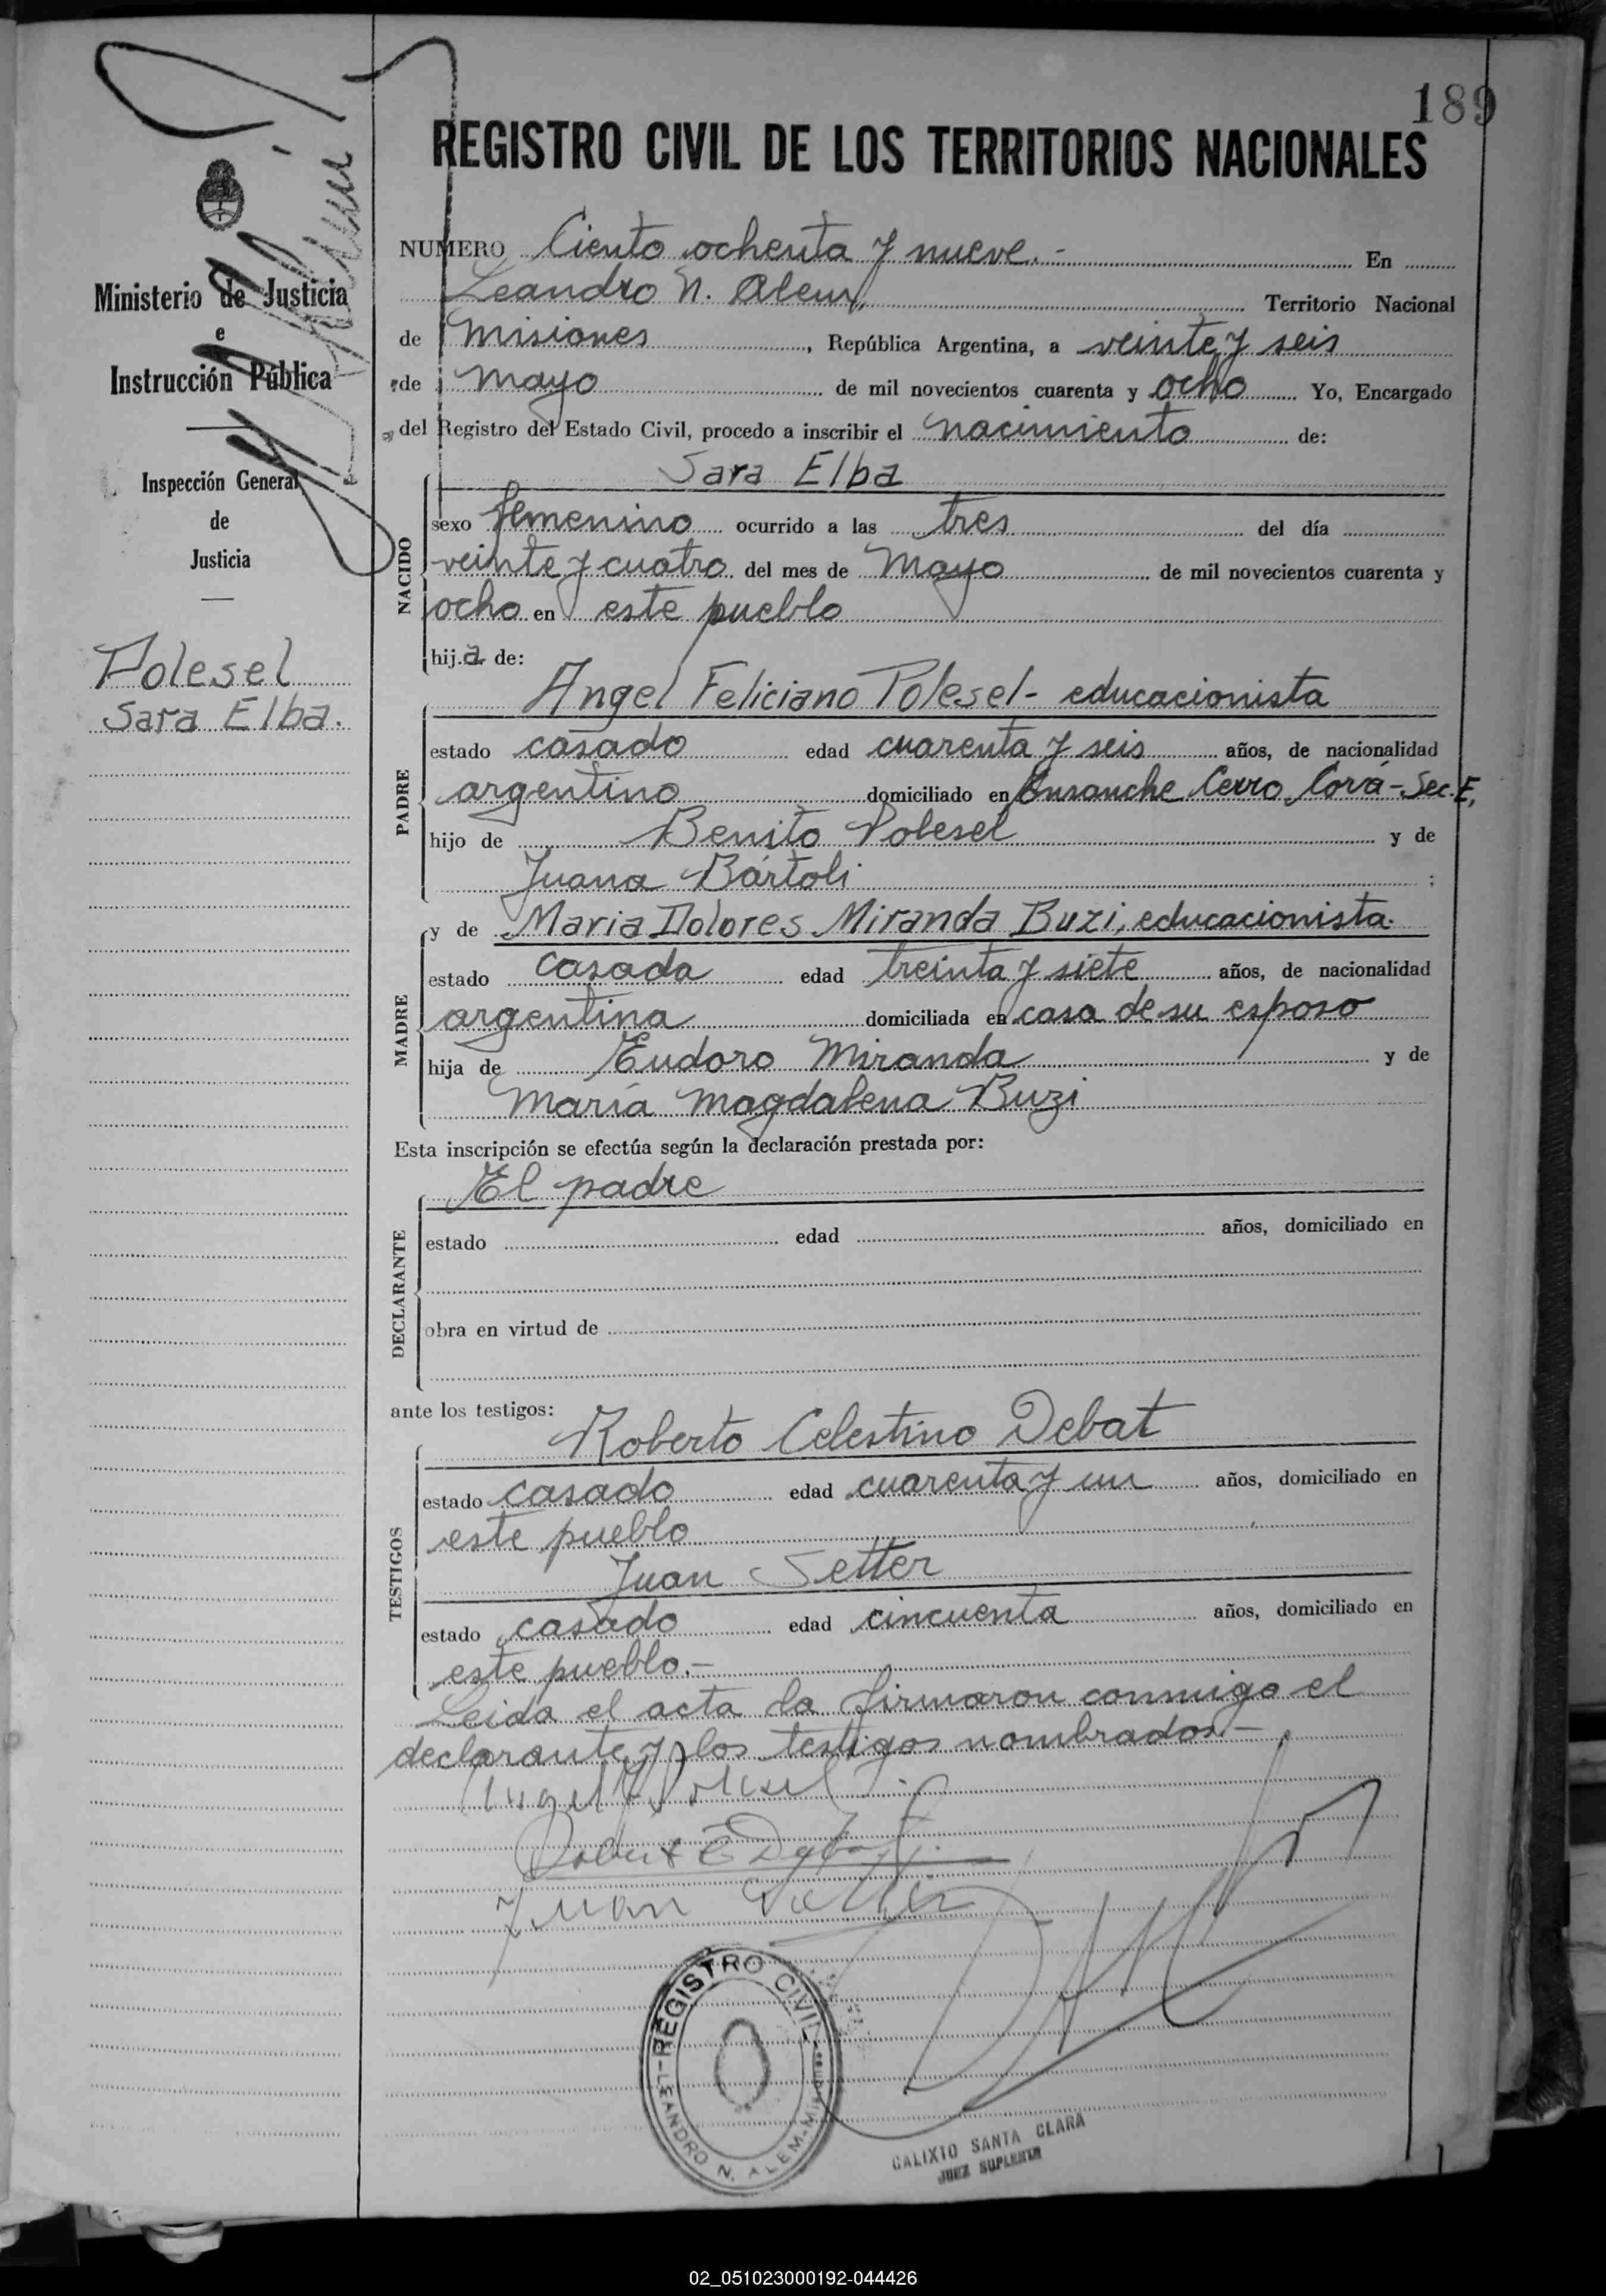 189
REGISTRO CIVIL DE LOS TERRITORIOS NACIONALES
Ministerio de Justicia
e
Instrucción Pública
Inspección General
de
Justicia
Polesel
Sara Elba.
NUMERO Ciento ochenta y nueve.- En
Leandro N. Alem, Territorio Nacional
de Misiones, República Argentina, a veinte y seis
de mayo de mil novecientos cuarenta y ocho Yo, Encargado
del Registro del Estado Civil, procedo a inscribir el nacimiento de:
NACIDO
Sara Elba
sexo femenino ocurrido a las tres del día
veinte y cuatro del mes de Mayo de mil novecientos cuarenta y
ocho en este pueblo
hija de:
PADRE
Angel Feliciano Polesel- educacionista
estado casado edad cuarenta y seis años, de nacionalidad
argentino domiciliado en Ensanche Cerro Corá-Sec.E,
hijo de Benito Polesel y de
Juana Bártoli ;
MADRE
y de Maria Dolores Miranda Buzi, educacionista.
estado casada edad treinta y siete años, de nacionalidad
argentina domiciliada en casa de su esposo
hija de Eudoro Miranda y de
María Magdalena Buzi
Esta inscripción se efectúa según la declaración prestada por:
DECLARANTE
El padre
estado edad años, domiciliado en
obra en virtud de
ante los testigos:
TESTIGOS
Roberto Celestino Debat
estado casado edad cuarenta y un años, domiciliado en
este pueblo
Juan Setter
estado casado edad cincuenta años, domiciliado en
este pueblo.-
Leida el acta la firmaron conmigo el
declarante y los testigos nombrados.-
Angel F. Polesel
Juan Setter
REGISTRO CIVIL
LEANDRO N. ALEM-
CALIXTO SANTA CLARA
JUEZ SUPLENTE
02_051023000192-044426